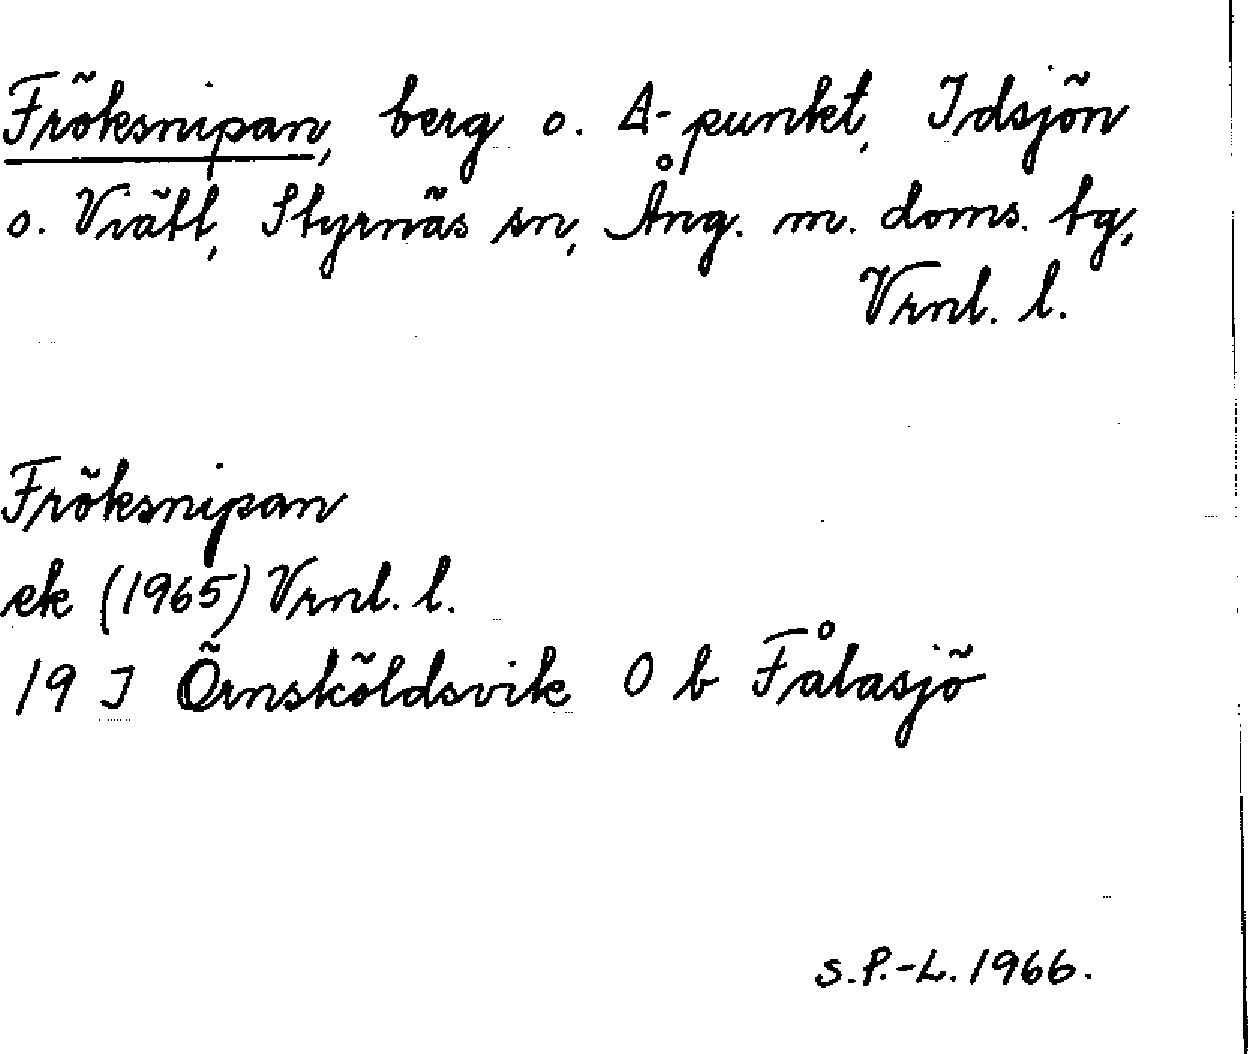 Fröksnipan, berg o. Δ-punkt, Idsjön
o. Viätt, Styrnäs sn, Ång. m. doms. tg,
Vrnl. l.
Fröksnipan
ek (1965) Vrnl. l.
19 I Örnsköldsvik O b Fålasjö
S.P.-L. 1966.